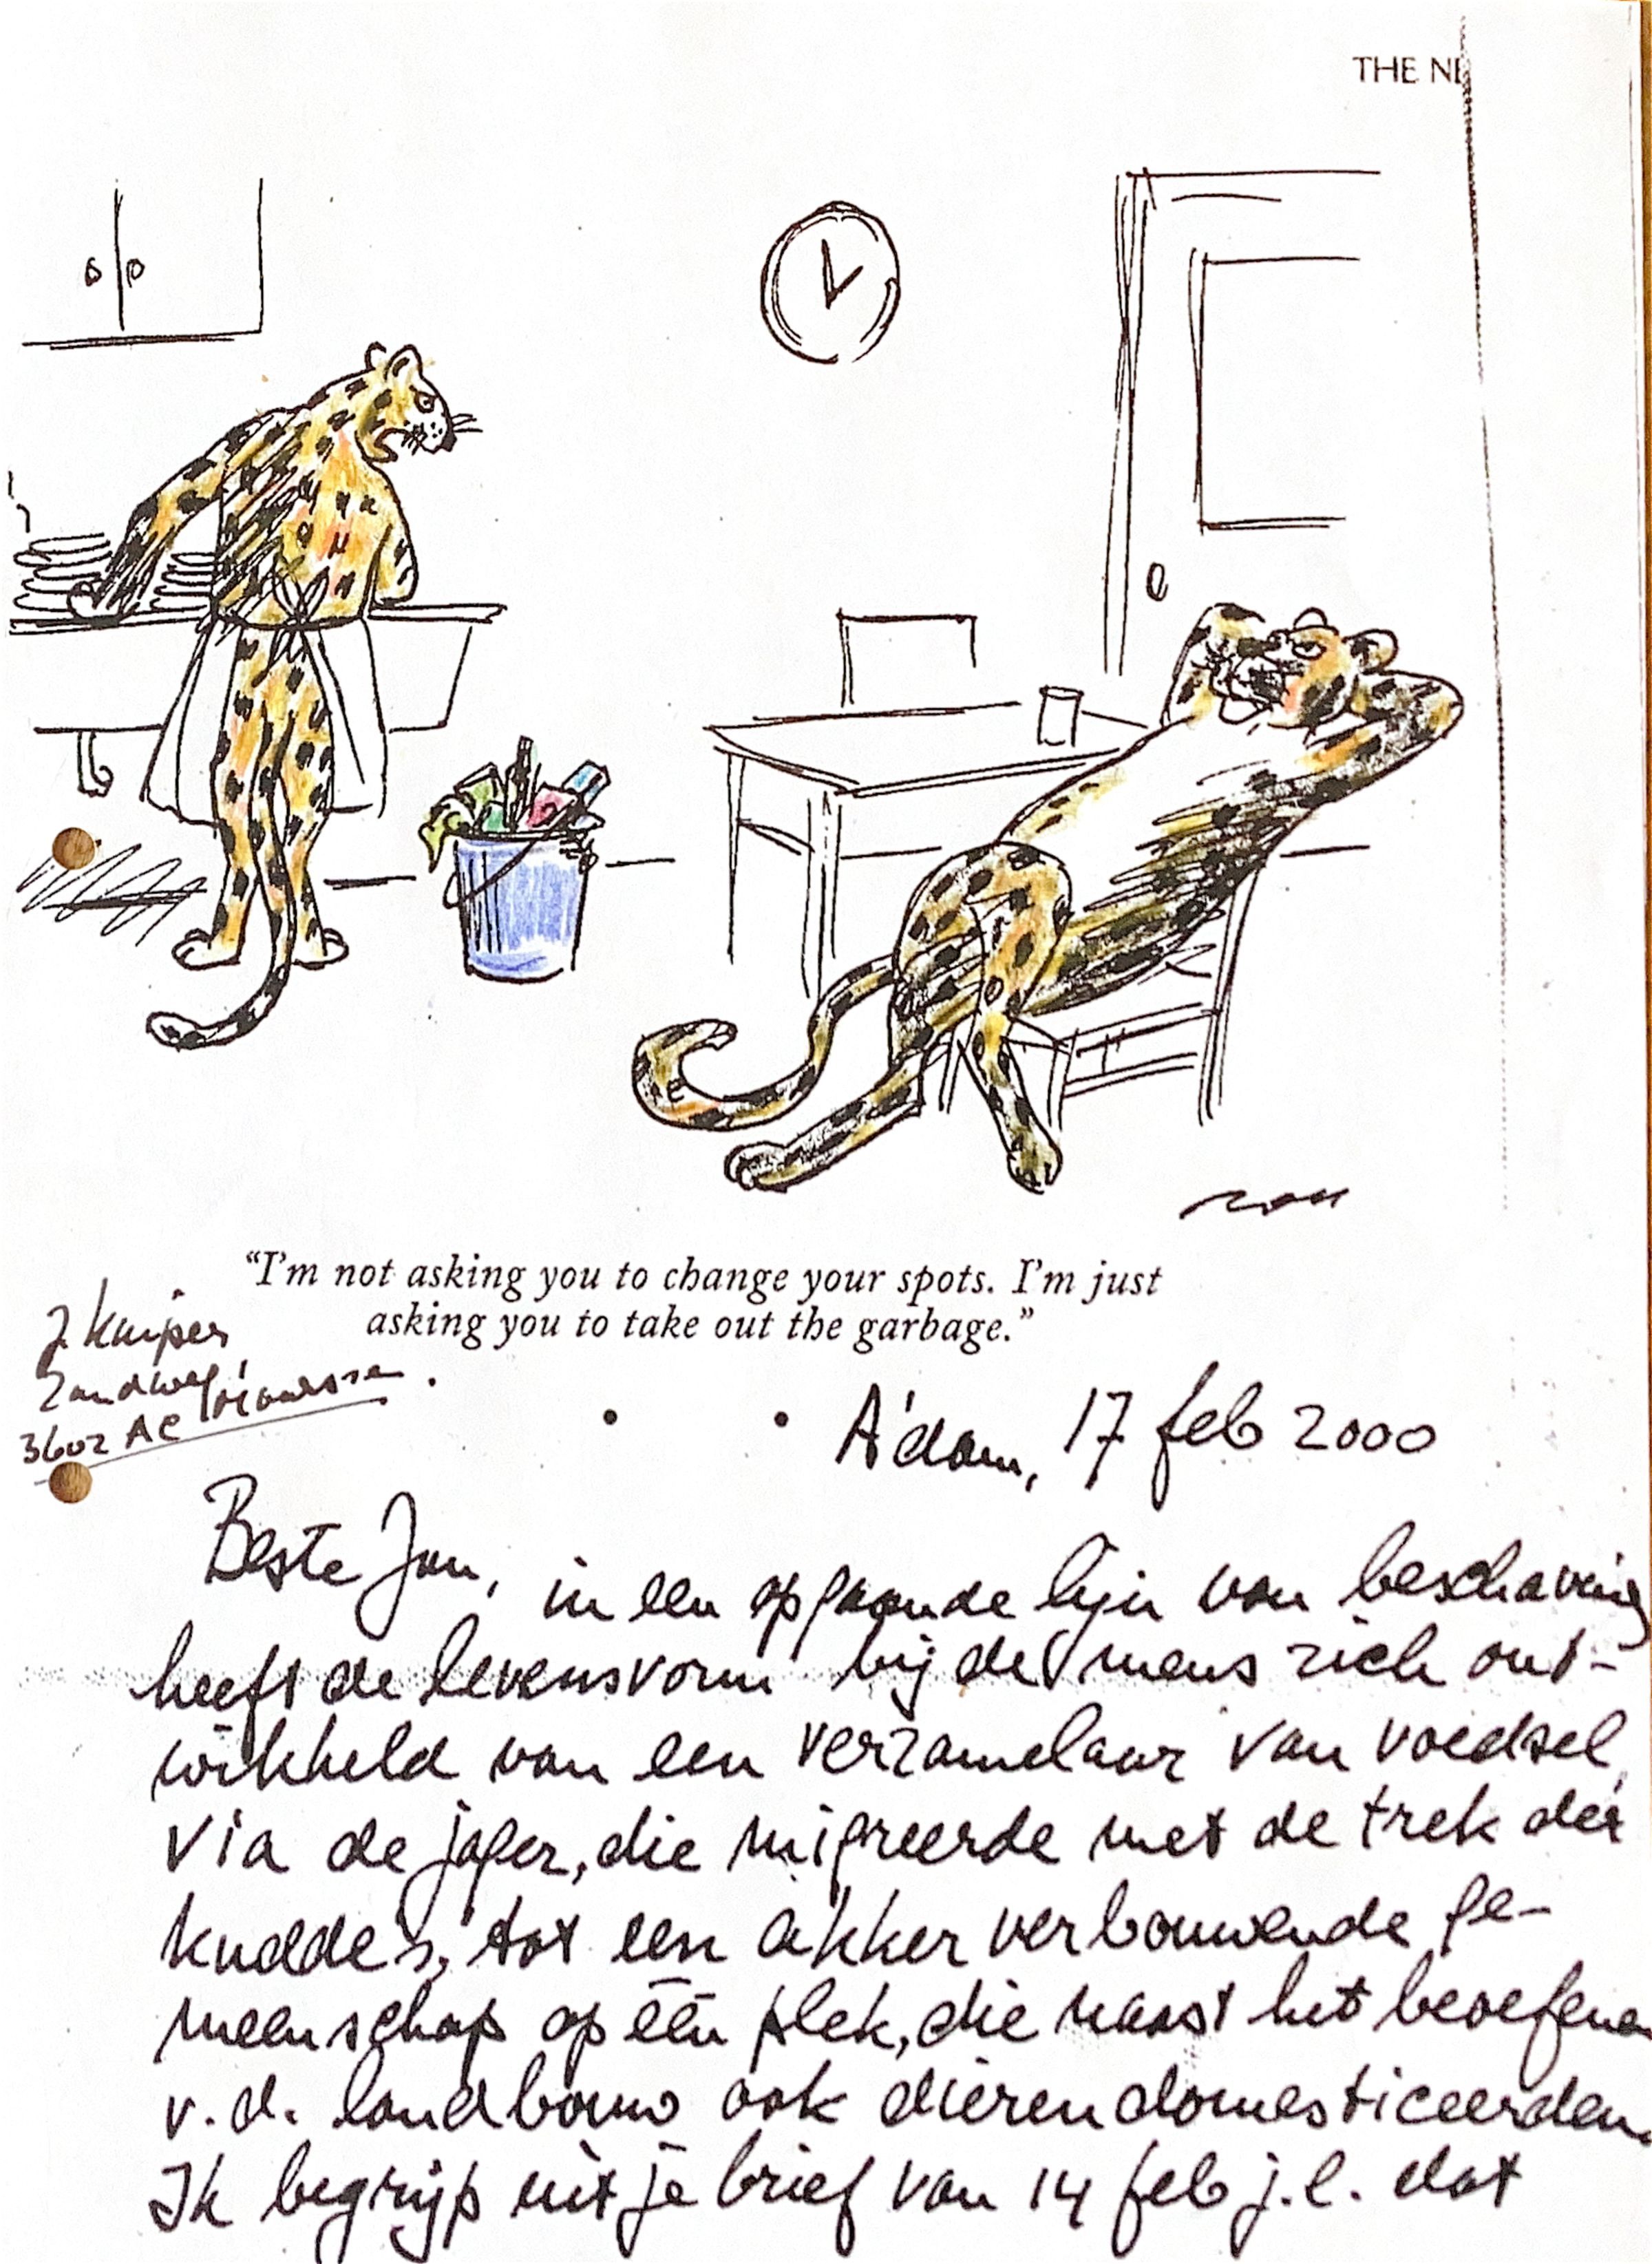 THE NE
"I'm not asking you to change your spots. I'm just
asking you to take out the garbage."
J Kuiper
Zandweg
3602 AC Maarssen
A'dam, 17 feb 2000
Beste Jan, in een opgaande lijn van beschaving
heeft de levensvorm bij de mens zich ont-
wikkeld van een verzamelaar van voedsel,
via de jager, die migreerde met de trek der
kudde's, tot een akker verbouwende ge-
meenschap op één plek, die naast het beoefenen
v.d. landbouw ook dieren domesticeerden.
Ik begrijp uit je brief van 14 feb j.l. dat